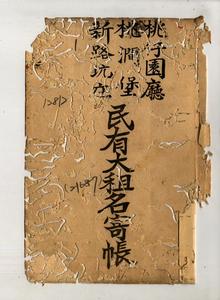 桃子園廳
桃澗堡
新路坑庄
民有大租名寄帳